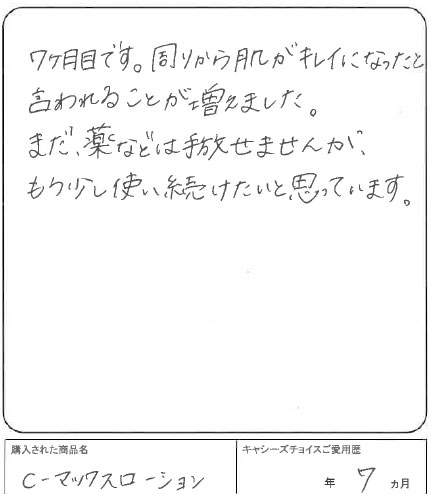 7ヶ月目です。周りから肌がキレイになったと
言われることが増えました。
まだ、薬などは手放せませんが、
もう少し使い続けたいと思っています。
購入された商品名
C-マックスローション
キャシーズチョイスご愛用歴
年 7 カ月